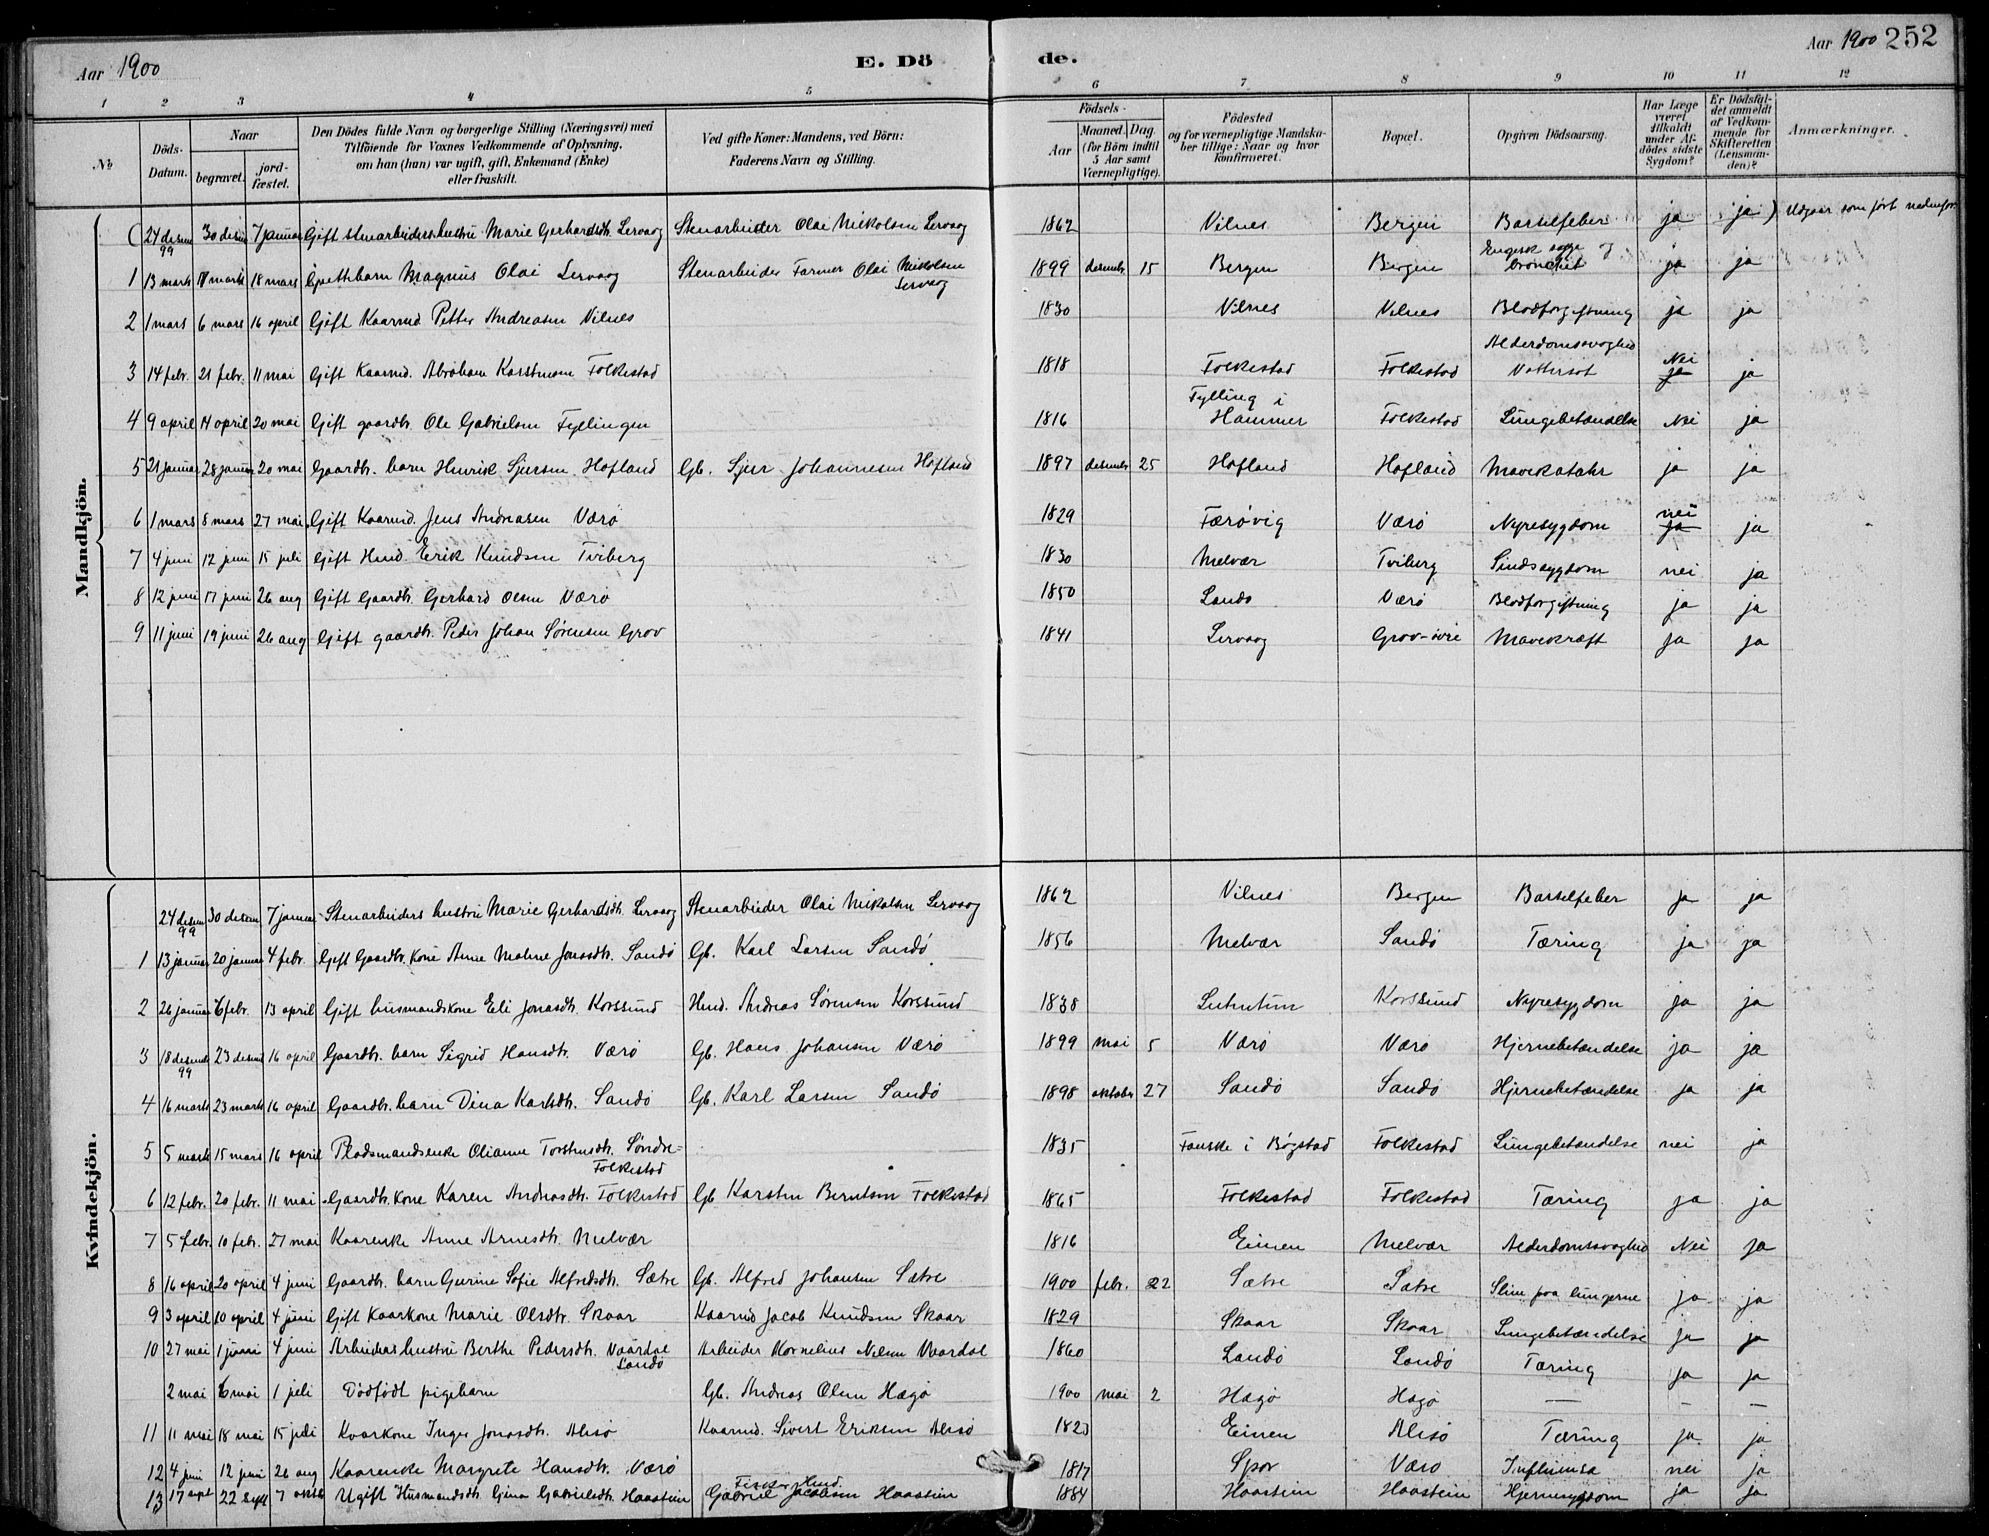 Aar 1900
E. Dö
de.
Aar 1900 252
1 2 3 4 5 6 7 8 9 10 11 12
№ Döds-Datum. Naar begravet. jordfæstet. Den Dödes fulde Navn og borgerlige Stilling (Næringsvei) med Tilföiende for Voxnes Vedkommende af Oplysning, om han (hun) var ugift, gift, Enkemand (Enke) eller fraskilt. Ved gifte Koner: Mandens, ved Börn: Faderens Navn og Stilling. Födsels- Aar Maaned. Dag. (for Börn indtil 5 Aar samt Værnepligtige). Födested og for værnepligtige Mandskaber tillige: Naar og hvor Konfirmeret. Bopæl. Opgiven Dödsaarsag. Har Læge været tilkaldt under Afdödes sidste Sygdom? Er Dödsfaldet anmeldt af Vedkommende for Skifteretten (Lensmanden)? Anmærkninger.
Mandkjön.
( 24 desem 99 30 desem 7 januar Gift stenarbeiders hustru Marie Gerhardsdtr. Lervaag Stenarbeider Olai Nikolsen Lervaag 1862 Vilnes Bergen Barselfeber ja ja ) Udgaar som ført nedenfor
1 13 marts 17 marts 18 mars Ægttebarn Magnus Olai Lervaag Stenarbeider Farmer Olai Nikolsen Lervaag 1899 desembr 15 Bergen Bergen Engelsk syge og bronchit ja ja
2 1 mars 6 mars 16 april Gift Kaarmd. Petter Andreasen Vilnes 1830 Vilnes Vilnes Blodforgiftning ja ja
3 14 febr. 21 febr. 11 mai Gift Kaarmd. Abraham Karstensen Folkestad 1818 Folkestad Folkestad Alderdomssvaghed Vattersot Nei ja ja
4 9 april 14 april 20 mai Gift gaardbr. Ole Gabrielsen Fyllingen 1816 Fylling i Hammer Folkestad Lungebetændelse Nei ja
5 21 januar 28 januar 20 mai Gaardbr. barn Henrik Sjursen Hofland Gb. Sjur Johannesen Hofland 1897 desembr 25 Hofland Hofland Mavekatahr ja ja
6 1 mars 8 mars 27 mai Gift Kaarmd. Jens Andreasen Værø 1829 Færøvig Værø Nyresygdom nei ja ja
7 4 juni 12 juni 15 juli Gift Hmd. Erik Knudsen Tviberg 1830 Melvær Tviberg Sindssygdom nei ja
8 12 juni 17 juni 26 aug Gift Gaardbr. Gerhard Olsen Værø 1850 Sandø Værø Blodforgiftning ja ja
9 11 juni 19 juni 26 aug Gift gaardbr. Peder Johan Sørensen Grov 1841 Lervaag Grov-øvre Mavekræft ja ja
Kvindekjön.
24 desem 99 30 desem 7 januar Stenarbeiders hustru Marie Gerhardsdtr. Lervaag Stenarbeider Olai Nikolsen Lervaag 1862 Vilnes Bergen Barselfeber ja ja
1 13 januar 20 januar 4 febr. Gift Gaardbr. kone Anne Maline Jonasdtr. Sandø Gb. Karl Larsen Sandø 1856 Melvær Sandø Tæring ja ja
2 26 januar 6 febr. 13 april Gift husmandskone Eli Jonasdtr. Korssund Hmd. Andreas Sørensen Korssund 1838 Korssund Nyresygdom ja ja
3 18 desembr 99 23 desemb 16 april Gaardbr. barn Sigrid Hansdtr. Værø Gb. Hans Johansen Værø 1899 mai 5 Værø Værø Hjernebetændelse ja ja
4 16 marts 23 marts 16 april Gaardbr. barn Dina Karlsdtr. Sandø Gb. Karl Larsen Sandø 1898 oktober 27 Sandø Sandø Hjernebetændelse ja ja
5 5 marts 15 mars 16 april Pladsmandsenke Oliane Torstensdtr. Søndre-Folkestad 1835 Fauske i Bøgstad Folkestad Lungebetændelse nei ja
6 12 febr. 20 febr. 11 mai Gaardbr. kone Karen Andreasdtr. Folkestad Gb Karsten Berntsen Folkestad 1865 Folkestad Folkestad Tæring ja ja
7 5 febr. 10 febr. 27 mai Kaarenke Anne Arnesdtr. Melvær 1816 Einen Melvær Alderdomssvaghed Nei ja
8 16 april 20 april 4 juni Gaardbr. barn Gurine Sofie Alfredsdtr. Sætre Gb. Alfred Johansen Sætre 1900 febr. 22 Sætre Sætre Slim paa lungerne ja ja
9 3 april 10 april 4 juni Gift Kaarkone Marie Olsdtr. Skaar Kaarmd Jacob Knudsen Skaar 1829 Skaar Skaar Lungebetændelse ja ja
10 27 mai 1 juni 4 juni Arbeiders hustru Berthe Pedersdtr. Vaardal Sandø Arbeider Kornelius Nilsen Vaardal 1860 Sandø Sandø Tæring ja ja
2 mai 6 mai 1 juli Dødfødt pigebarn Gb. Andreas Olsen Hægø 1900 mai 2 Hægø Hægø — — —
11 11 mai 18 mai 15 juli Kaarkone Inger Jonasdtr. Alisø Kaarmd. Sivert Eriksen Alisø 1823 Einen Alisø Tæring ja ja
12 4 juni 12 juni 26 aug Kaarenke Margrete Hansdtr. Værø 1817 Spor Værø Influensa nei ja
13 17 sept 22 sept 7 oktob Ugift Husmandsdtr. Gina Gabrielsdtr. Haastein Fisker Hmd. Gabriel Jacobsen Haastein 1884 Haastein Haastein Hjernesygdom ja ja